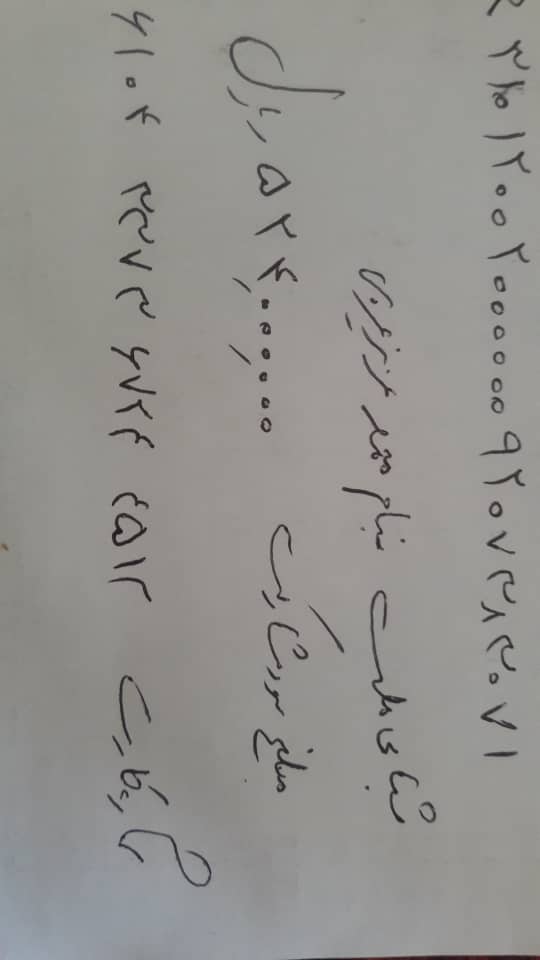 R ۳۱۰۱۲۰۰۲۰۰۰۰۰۰۹۲۰۷۳۸۳۰۷۱
شبای ملت بنام محمد عزیز عربی
مبلغ سود مشارکت ۵۲۴,۰۰۰,۰۰۰ ریال
شماره کارت ۶۱۰۴ ۳۳۷۳ ۶۷۲۴ ۴۵۱۲